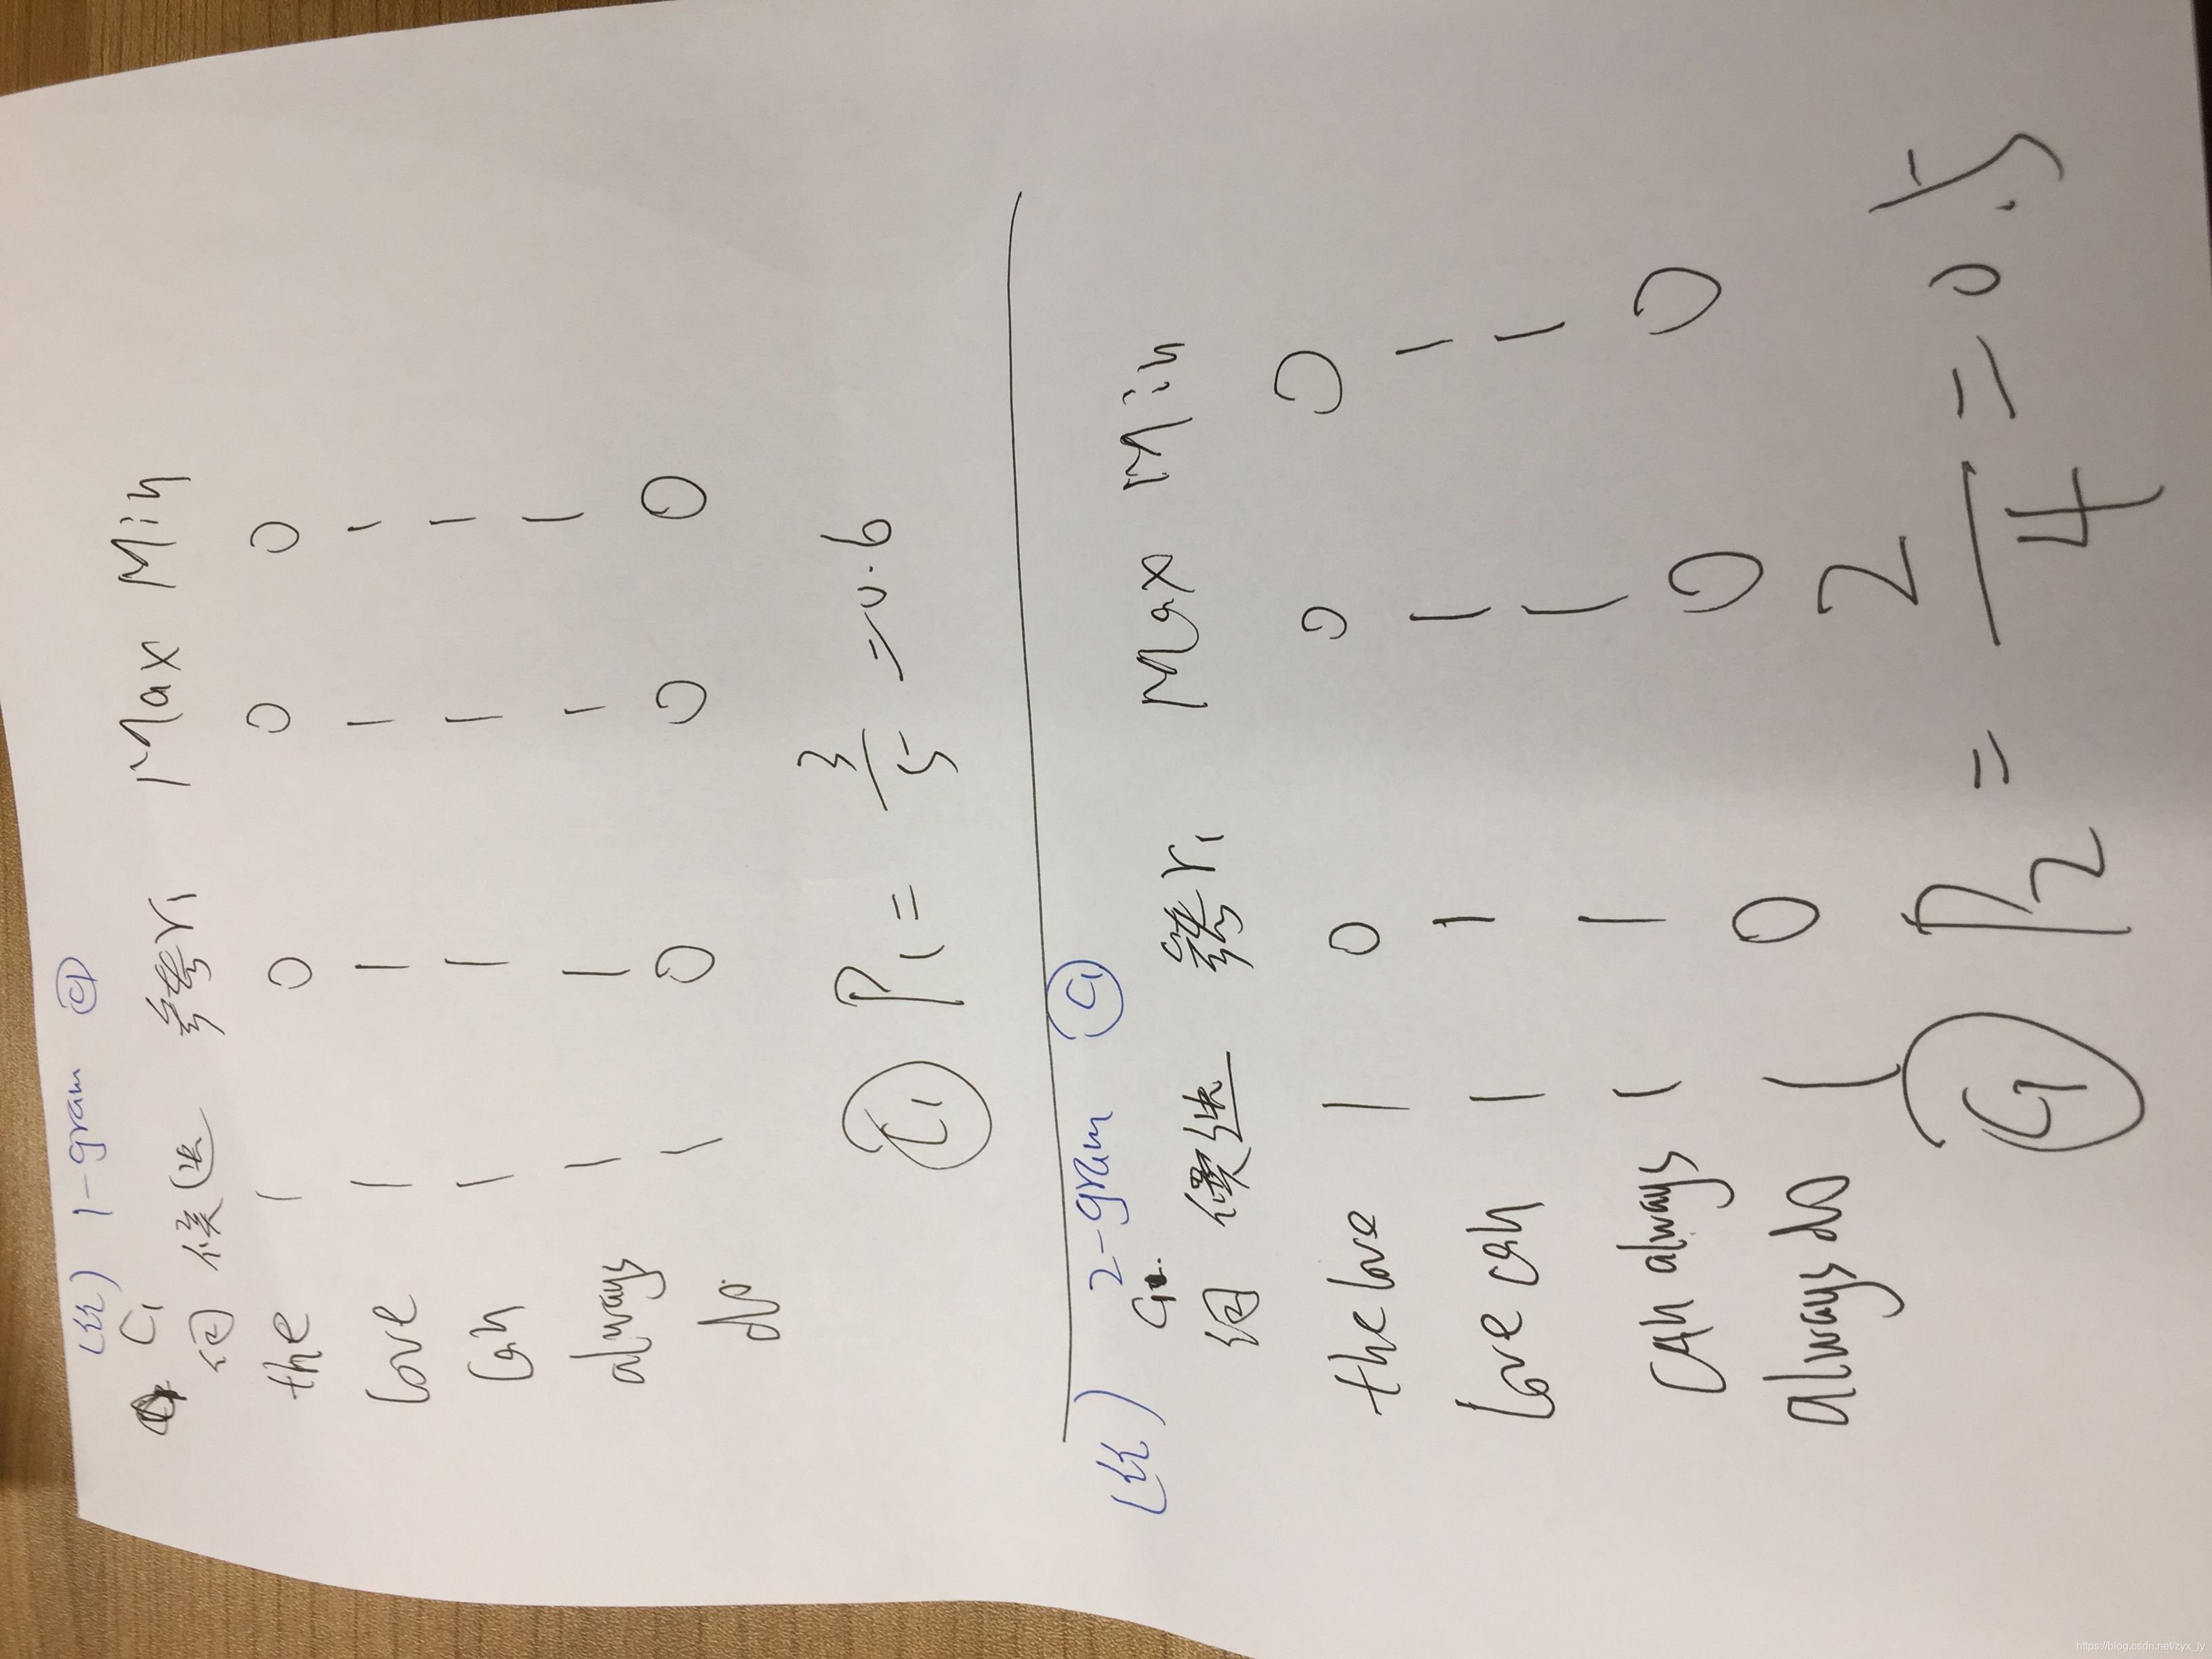 1-gram C1
C1
词 候选 参考r1 Max Min
the 1 0 0 0
love 1 1 1 1
can 1 1 1 1
always 1 1 1 1
do 1 0 0 0
C1 P1 = 3/5 = 0.6
2-gram C1
C1
词 候选 参考r1 Max Min
the love 1 0 0 0
love can 1 1 1 1
can always 1 1 1 1
always do 1 0 0 0
C1 P2 = 2/4 = 0.5
https://blog.csdn.net/zyx_ly